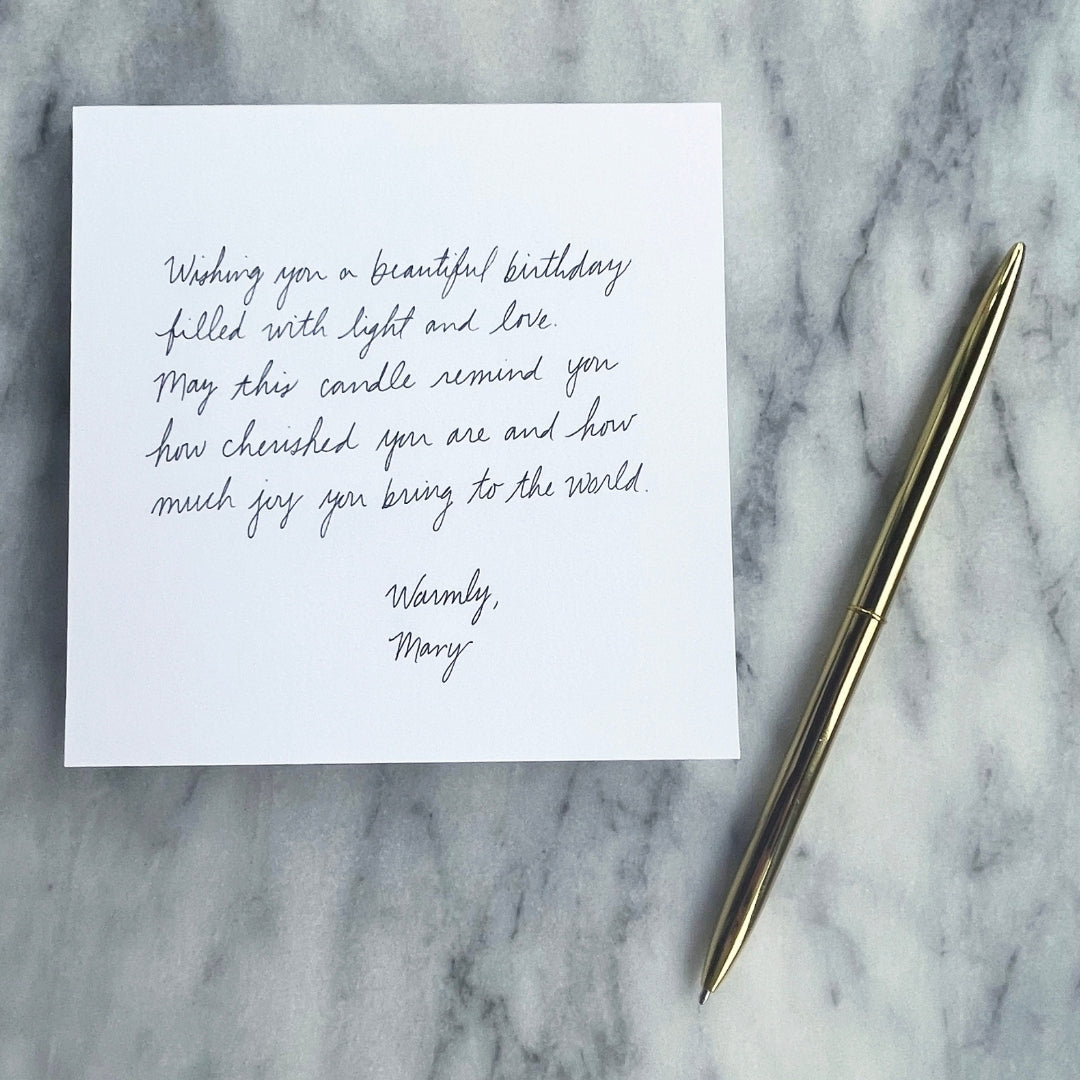 Wishing you a beautiful birthday
filled with light and love.
May this candle remind you
how cherished you are and how
much joy you bring to the world.
Warmly,
Mary